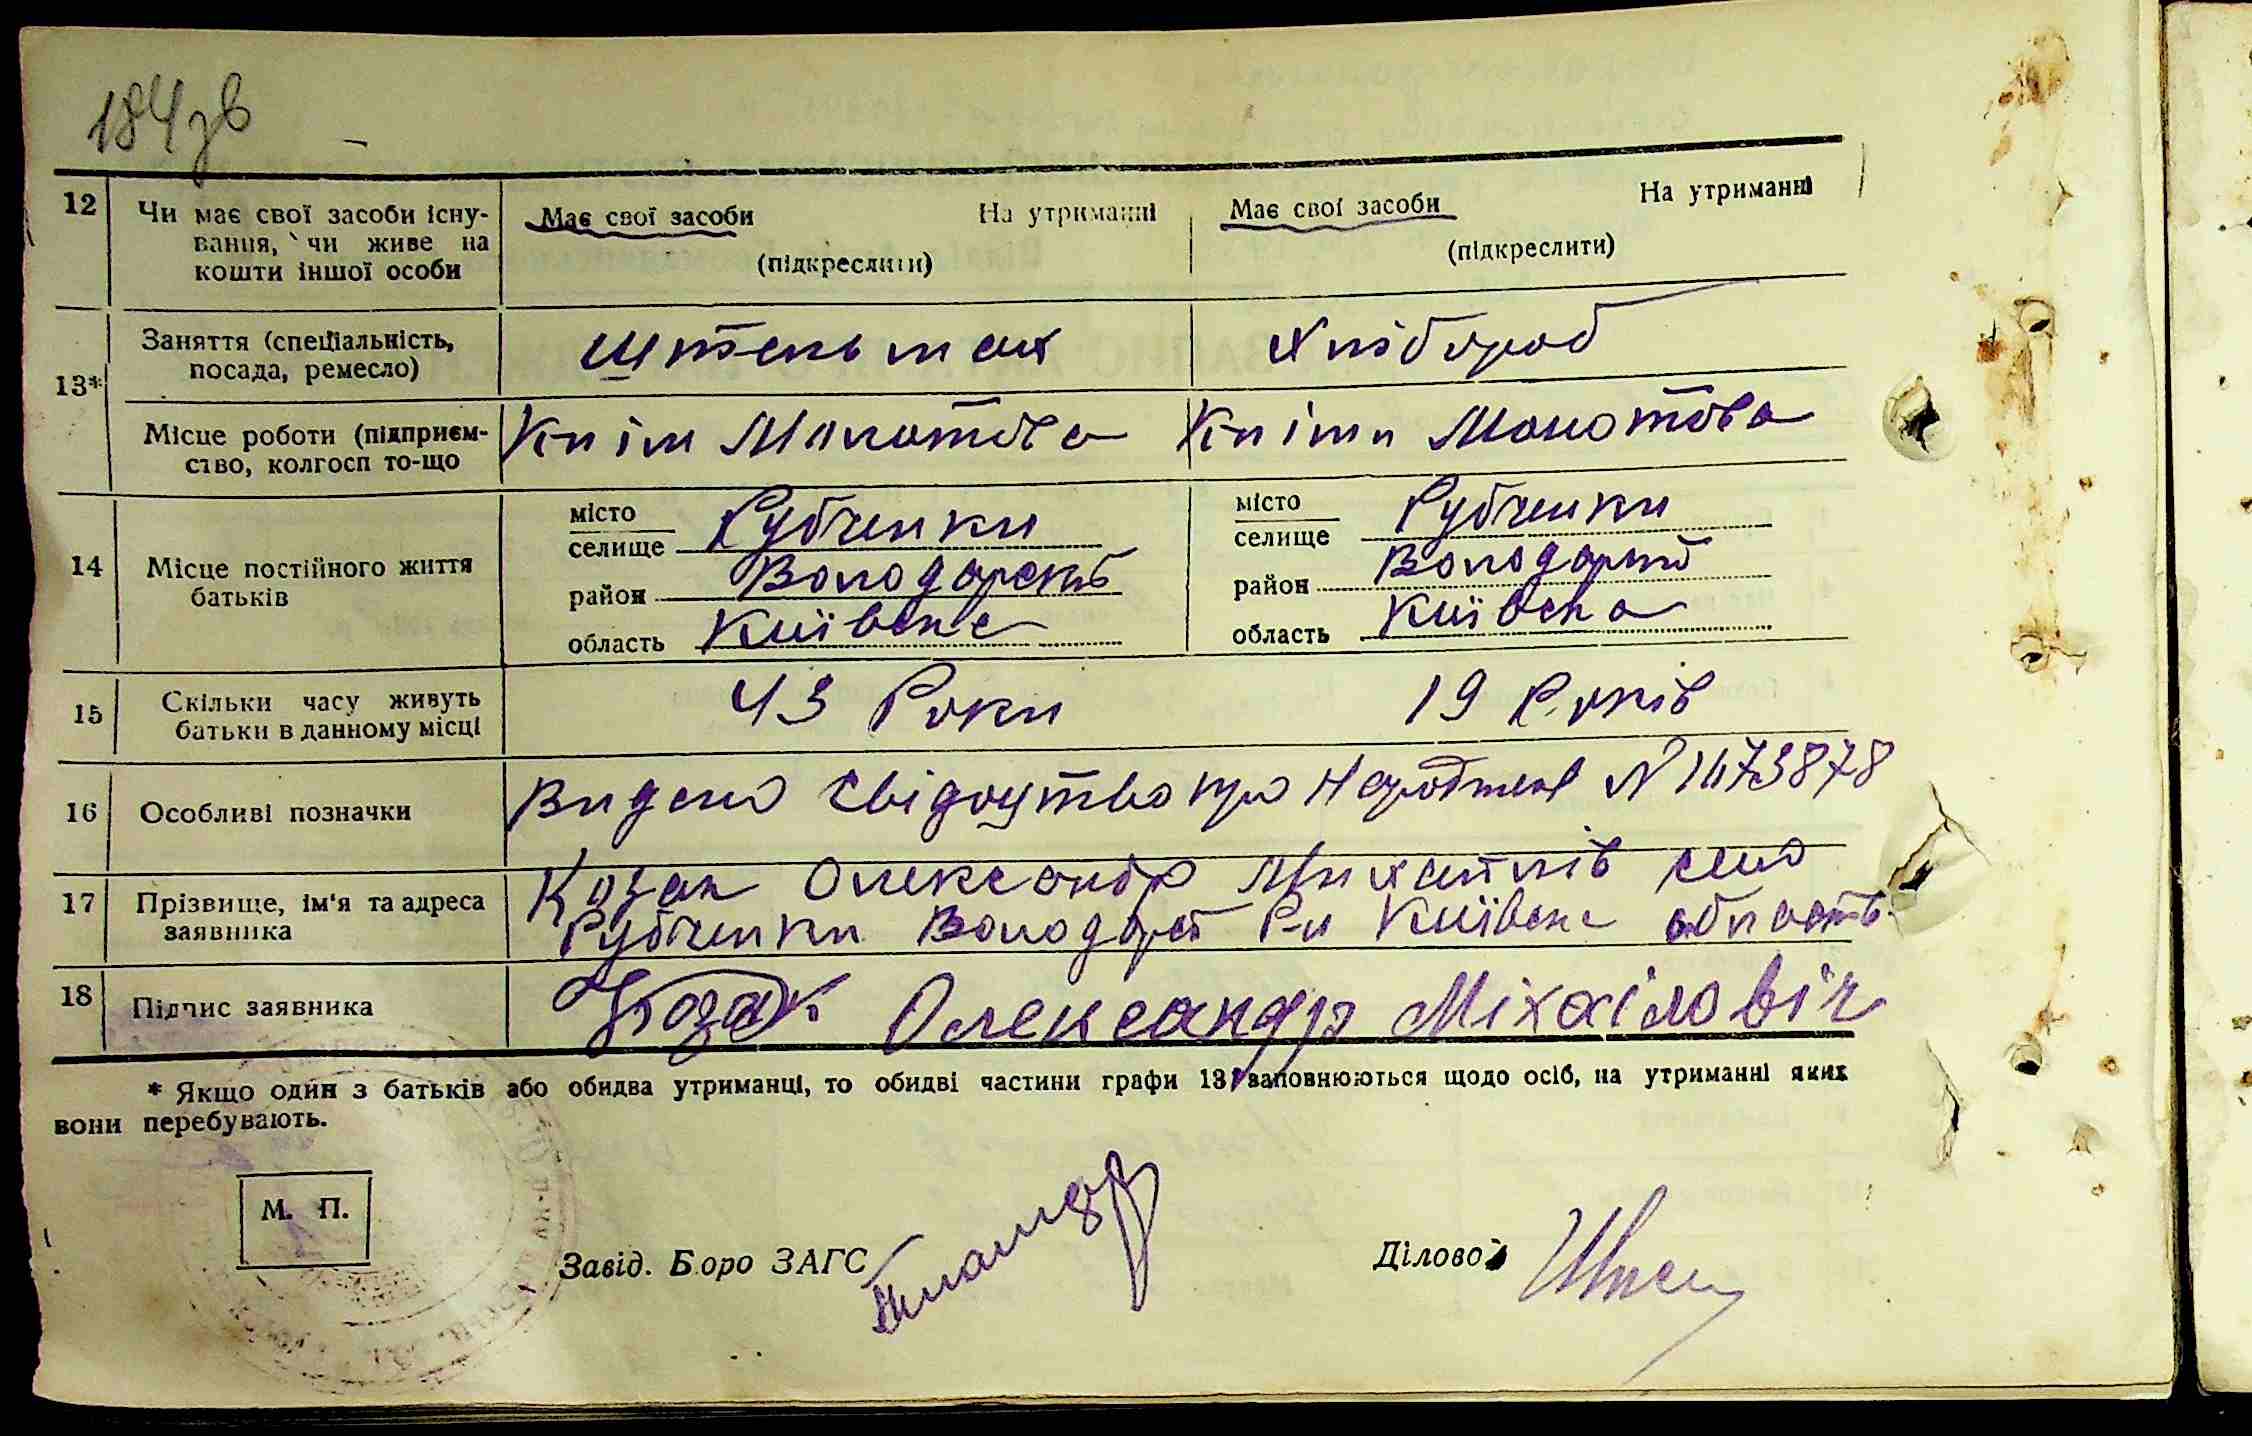 184зв
12 Чи має свої засоби існу-
вання, чи живе на
кошти іншої особи
Має свої засоби На утриманні
(підкреслити)
Має свої засоби На утриманні
(підкреслити)
13*
Заняття (спеціальність,
посада, ремесло)
Штельмах
Хлібороб
Місце роботи (підприєм-
ство, колгосп то-що
Молотова
Молотова
14 Місце постійного життя
батьків
місто
селище Рубченки
район Володарскі
область Київске
місто
селище Рубченки
район
область Київска
15 Скільки часу живуть
батьки в данному місці
43 Роки
19 Років
16 Особливі позначки
Видено свідоцтво про
17 Прізвище, ім'я та адреса
заявника
Козак Олександр село
Рубченки Р-н Київске область
18 Підпис заявника
Козак Олександр Міхаіловіч
* Якщо один з батьків або обидва утриманці, то обидві частини графи 13 заповнюються щодо осіб, на утриманні яких
вони перебувають.
М. П.
Завід. Бюро ЗАГС
Діловод